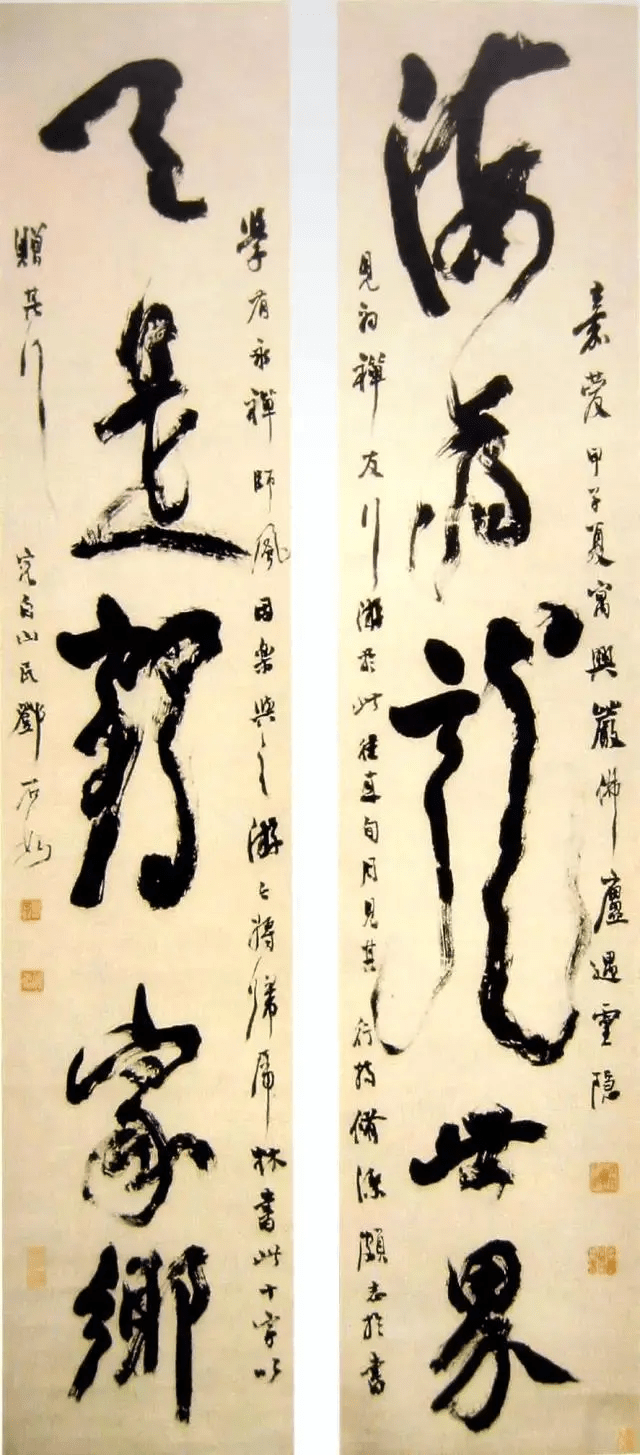 嘉慶甲子夏寓興嚴佛廬遇靈隱
海為龍世界
見初禪友行游於此旬月見其行持脩潔頗志於書
學有永禪師風因樂與之游〻將歸虎林書此十字以
天是鶴家鄉
贈其行 完白山民鄧石如